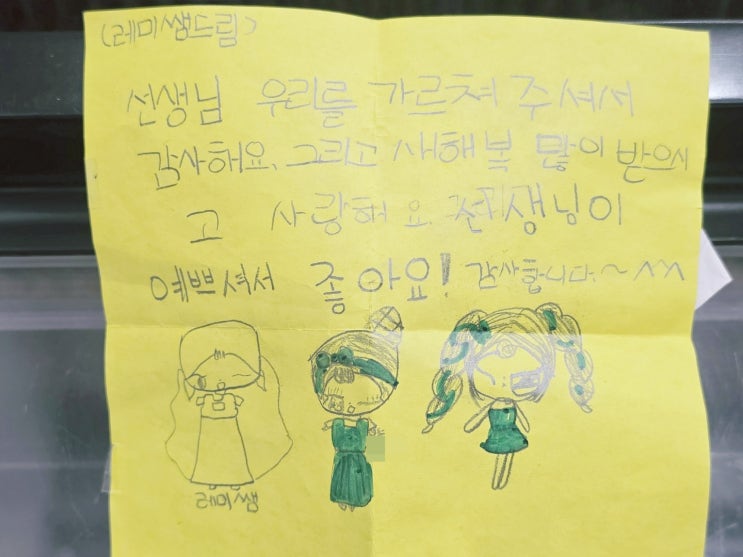 (레미쌤드림)
선생님 우리를 가르쳐 주셔서
감사해요. 그리고 새해복 많이 받으시
고 사랑해요 선생님이
예쁘셔서 좋아요! 감사합니다.~ ^^
레미쌤